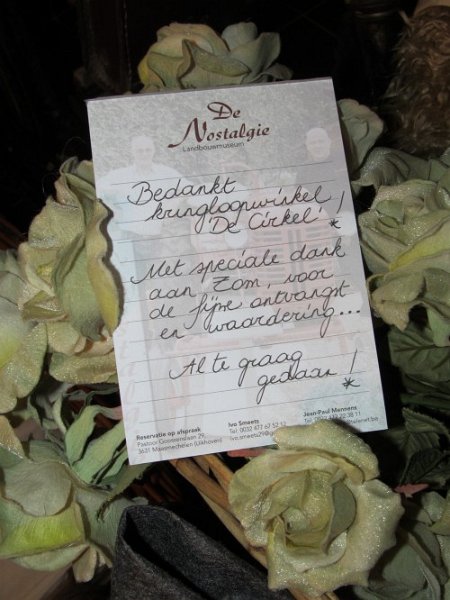 De
Nostalgie
Landbouwmuseum
Bedankt
kringloopwinkel
'De Cirkel' !
Met speciale dank
aan Tom, voor
de fijne ontvangst
en waardering...
Al te graag
gedaan !
Reservatie op afspraak
Pastoor Goossenslaan 29,
3631 Maasmechelen (Uikhoven)
Ivo Smeets
Tel. 0032 477 62 52 52
ivo.smeets29@
Jean-Paul Mennens